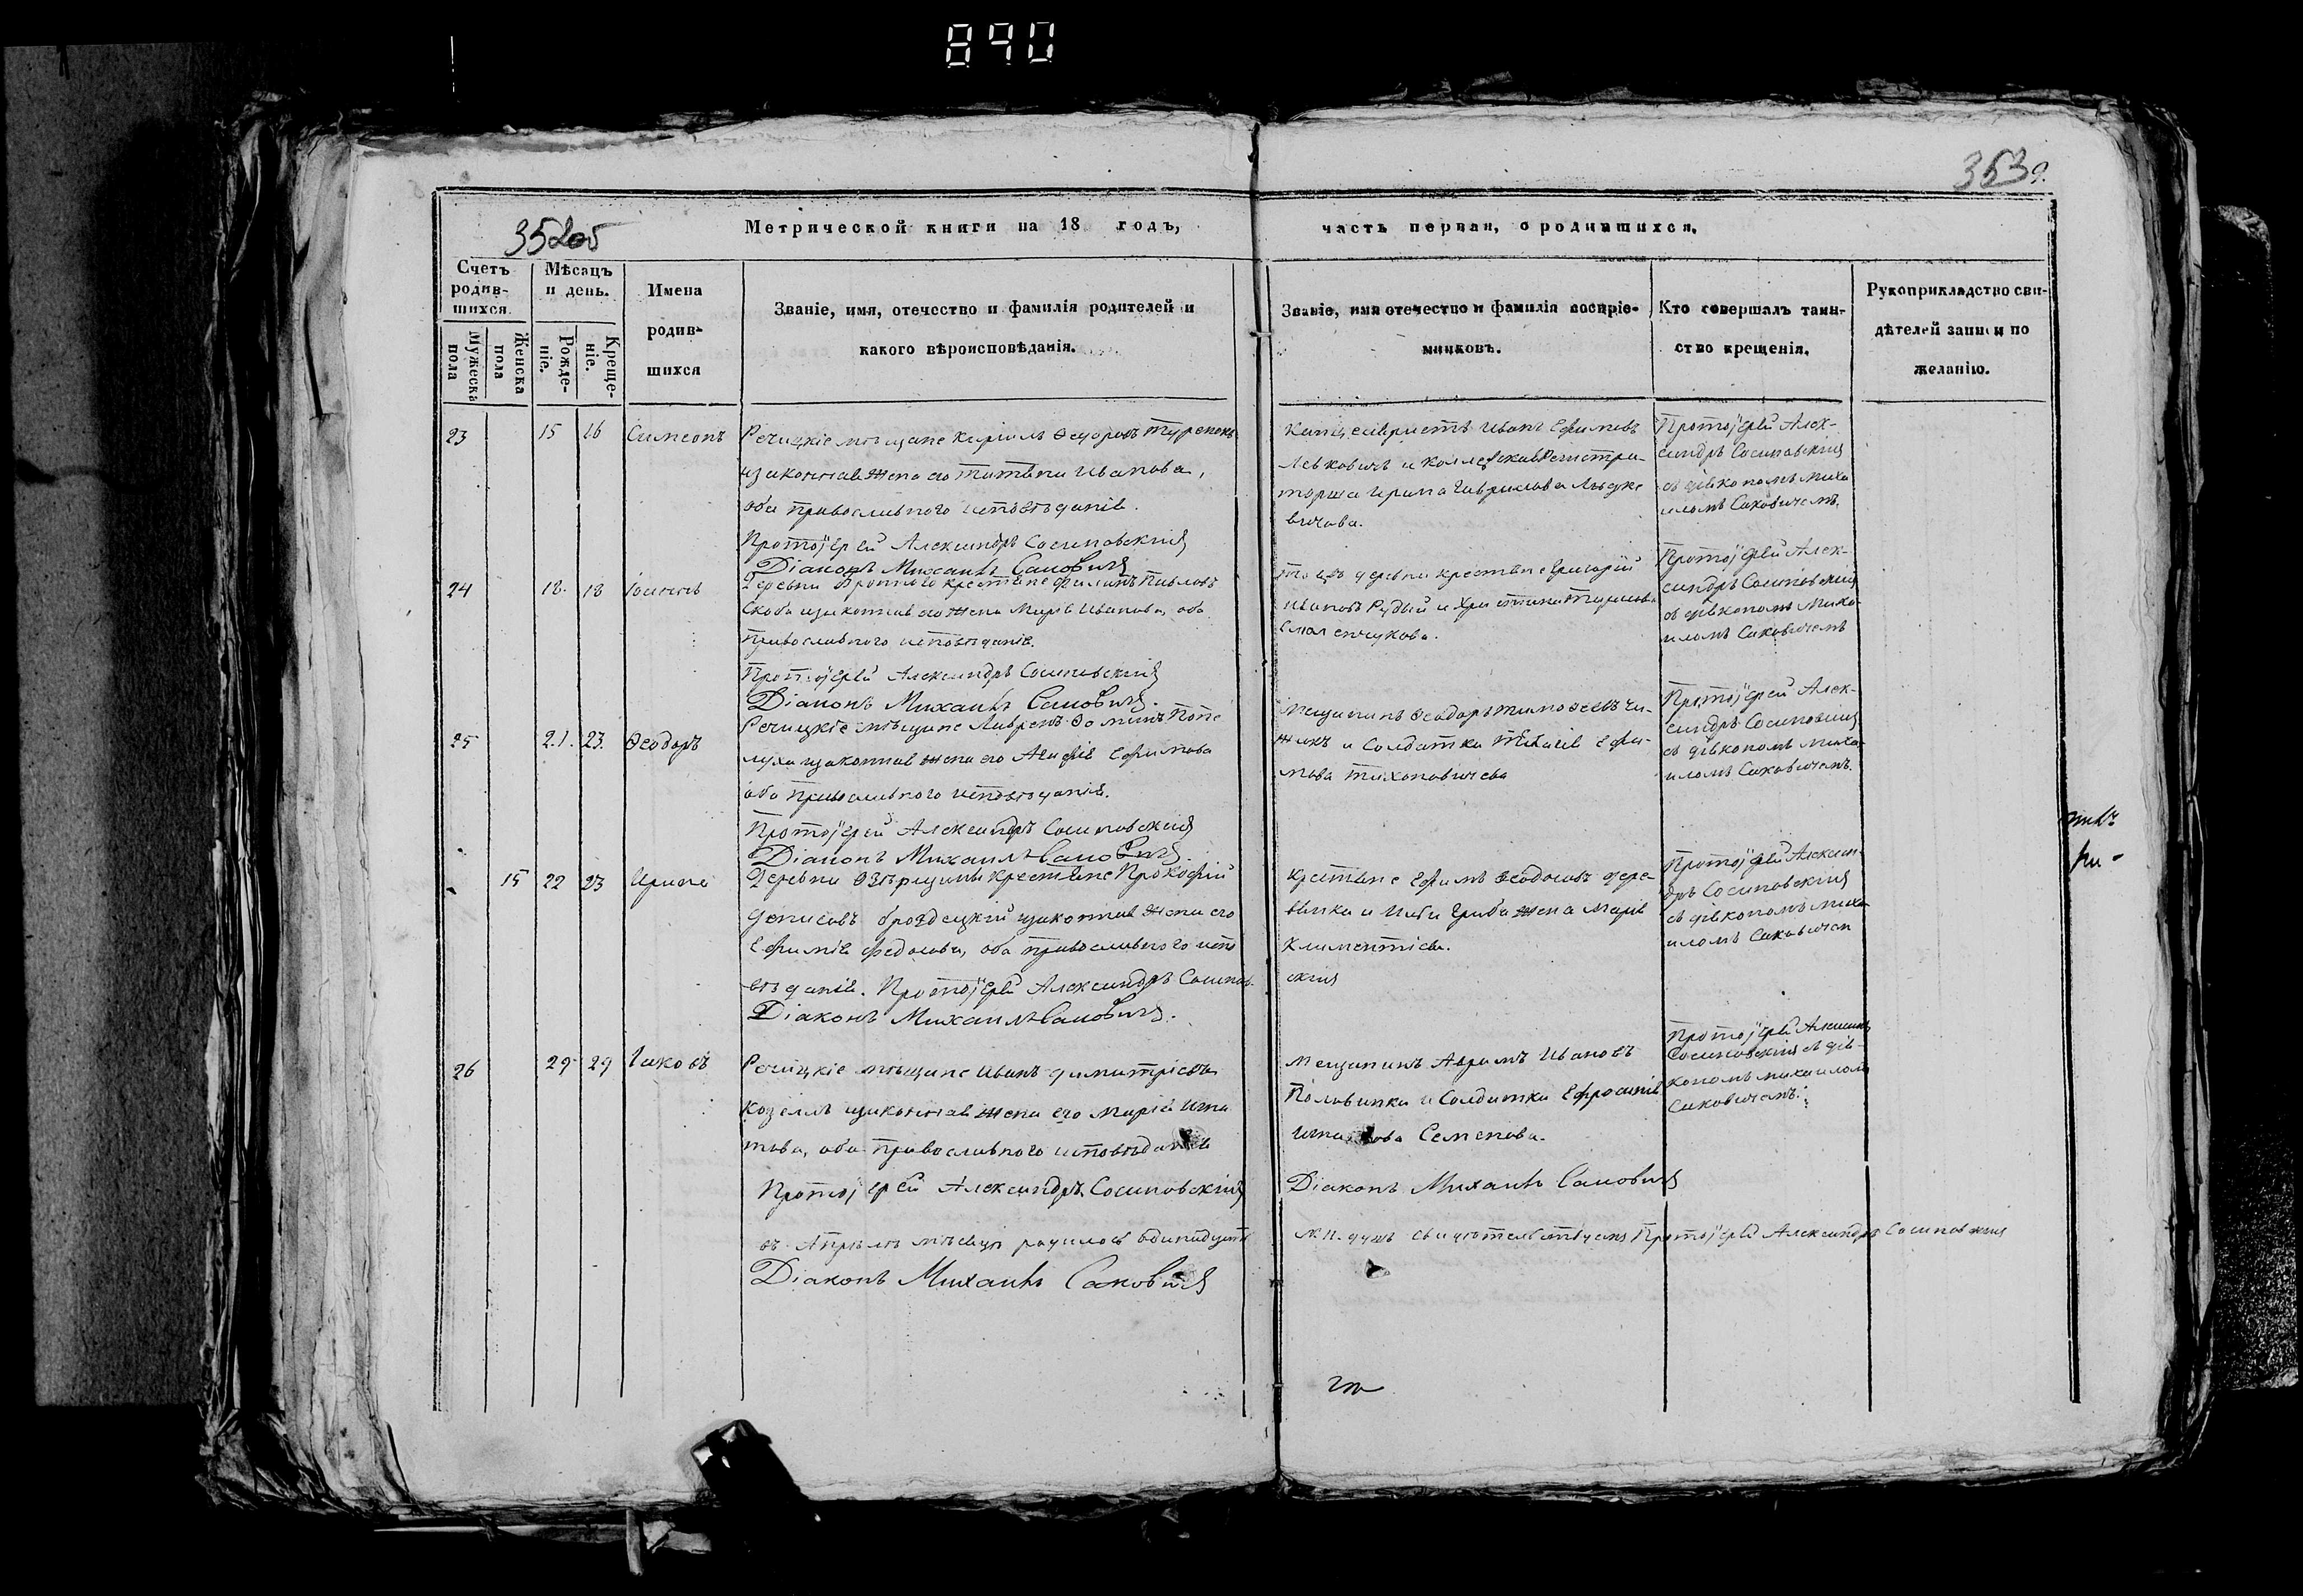 890
353
352об
Метрической книги на 18 годъ,
часть первая, о родившихся.
Счетъ родив-
шихся.
Мѣсяцъ
и день.
Имена
родив-
шихся
Званіе, имя, отечество и фамилія родителей и
какого вѣроисповѣданія.
Званіе, имя отечество и фамилія воспріе-
мниковъ.
Кто совершалъ таин-
ство крещенія.
Рукоприкладство сви-
дѣтелей записи по
желанію.
Мужеска
пола
Женска
пола
Рожде-
ніе.
Креще-
ніе.
23 15 16 Симеонъ
Речицкіе мѣщане Кирилъ Ѳедоровъ
изаконная жена его Татьяна Иванова,
оба православного исповѣданія.
Протоіерей Александръ Сосиновскій
Діаконъ Михаилъ Саковичъ
Иванъ Ефимовъ
Левковичъ и Коллежская Регистра-
торша Ирина Гаврилова
Протоіерей Алек-
сандръ Сосиновскій
съ діакономъ Миха
иломъ Саковичемъ.
24 18. 18 Іоаннъ
Деревни крестьяне Филипъ Павловъ
Скоба изаконная его жена Марія Иванова, оба
православного исповѣданія.
Протоіерей Александръ Сосиновскій
Діаконъ Михаилъ Саковичъ.
деревни крестьяне Григорій
Ивановъ Рудый и Христина
Протоіерей Алек-
сандръ Сосиновскій
съ діакономъ Миха-
иломъ Саковичемъ
25 21. 23. Ѳеодоръ
Речицкіе мѣщане Лавренъ Ѳоминъ Попе
луха изаконная жена его Агафія Ефимова
оба православного исповѣданія.
Протоіерей Александръ Сосиновскій
Діаконъ Михаилъ Саковичъ.
Мещанинъ Ѳеодоръ Тимоѳеевъ Чи-
жикъ и Солдатка Ефи-
мова Тихоновичева
Протоіерей Алек-
сандръ Сосиновскій
съ діакономъ Миха-
иломъ Саковичемъ.
15 22 23 Ирина
Деревни Озерщины крестьяне Прокофій
Денисовъ изаконная жена его
Ефимія Федосова, оба православного испо
вѣданія. Протоіерей Александръ Сосинов-
скій
Діаконъ Михаилъ Саковичъ.
Крестьяне Ефимъ Ѳеодосовъ
и жена Марія
Климентіева.
Протоіерей Алексан-
дръ Сосиновскій
съ діакономъ Миха
иломъ Саковичем
26 29 29 Іаковъ
Речицкіе мѣщане Иванъ Димитріевъ
Козелъ изаконная жена его Марія Игна
това, оба православного исповѣданія
Протоіерей Александръ Сосиновскій
Діаконъ Михаилъ Саковичъ
Мещанинъ Аврамъ Ивановъ
Половинка и Солдатка Ефросинія
Семенова.
Протоіерей
Сосиновскій съ діа-
кономъ Михаиломъ
Саковичемъ.
въ Апрѣлѣ мѣсяцѣ родилось одинадцать
м. п. душъ свидѣтельствуемъ Протоіерей Александръ Сосиновскій
Діаконъ Михаилъ Саковичъ